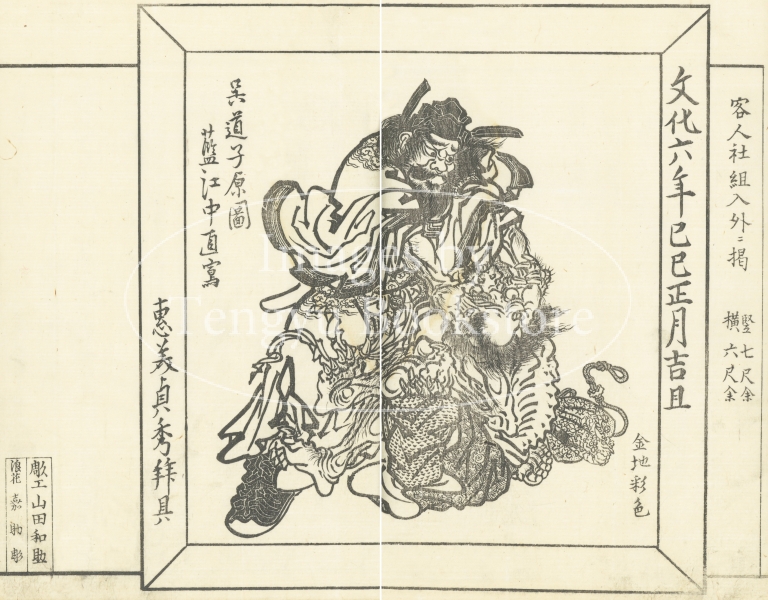 客人社組入外ニ掲
竪七尺余
横六尺余
文化六年己巳正月吉旦
金地彩色
呉道子原圖
藍江中直寫
恵美貞秀拜具
彫工 山田和助
浪花 嘉助彫
Images by
Tengyu Bookstore